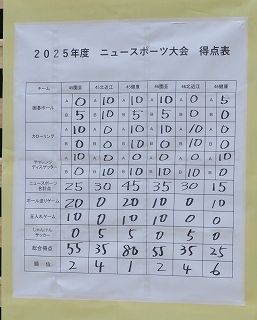 2025年度 ニュースポーツ大会 得点表
チーム
囲碁ボール A 0 10 10 10 0 5
B 5 10 5 5 0 0
カローリング A 0 0 10 10 10 0
B 0 0 10 0 10 0
チャレンジ ディスゲッター A 10 0 0 0 0 10
B 10 10 10 10 0 0
ニュースポーツ 合計点 25 30 45 35 30 15
ボール送りゲーム 20 0 20 10 0 10
玉入れゲーム 10 0 10 10 0 0
じゃんけん サッカー 0 5 5 0 5 0
総合得点 55 35 80 55 35 25
順位 2 4 1 2 4 6